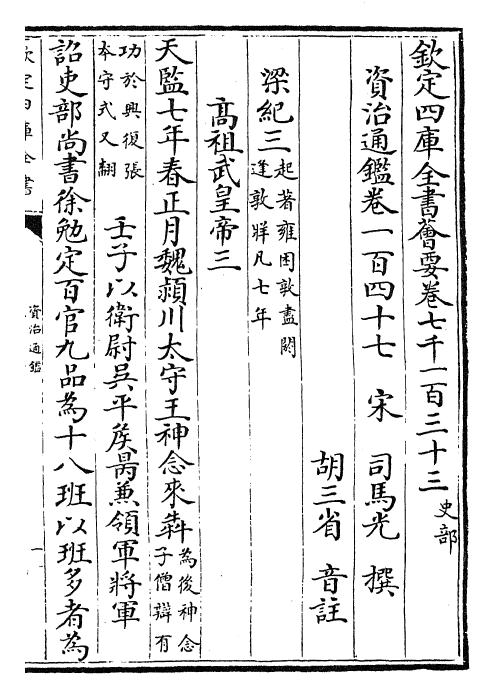 欽定四庫全書薈要卷七千一百三十三
史部
資治通鑑卷一百四十七　宋　司馬光　撰
胡三省　音註
梁紀三
起著雍困敦盡閼
逢敦牂凡七年
高祖武皇帝三
天監七年春正月魏潁川太守王神念來犇
為後神念
子僧辯有
功於興復張
本守式又翻
壬子以衛尉吳平侯昺兼領軍將軍
詔吏部尚書徐勉定百官九品為十八班以班多者為
欽定四庫全書
資治通鑑
一